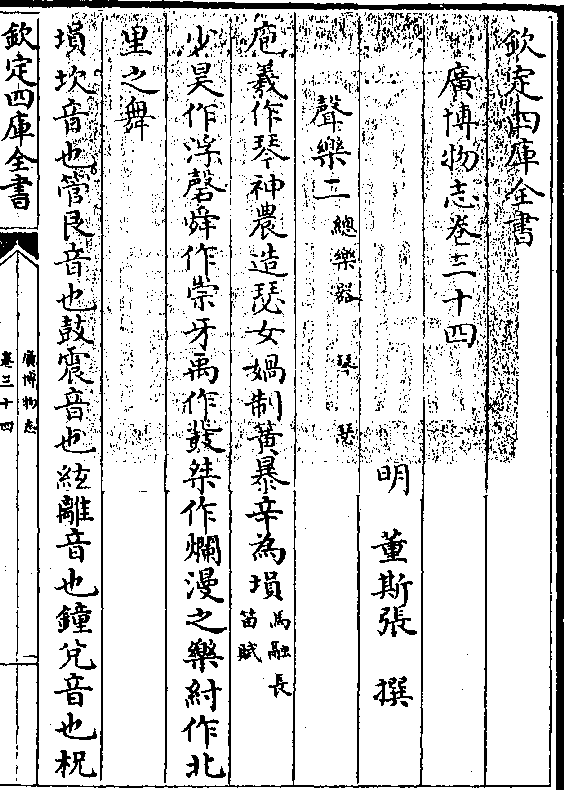 欽定四庫全書
廣博物志卷三十四
明 董斯張 撰
聲樂二總樂器 琴 瑟
庖羲作琴神農造瑟女媧制簧暴辛為塤馬融長笛賦
少昊作浮磬舜作崇牙禹作鼗桀作爛漫之樂紂作北
里之舞
塤坎音也管艮音也鼓震音也絃離音也鐘兌音也柷
欽定四庫全書
廣博物志
卷三十四
一